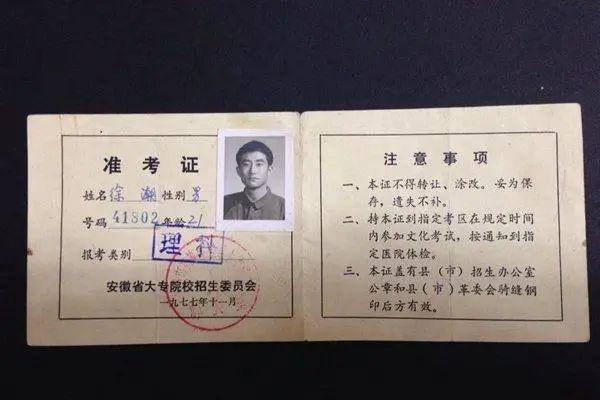 准考证
姓名 徐潮 性别 男
号码 41802 年龄 21
报考类别 理科
安徽省大专院校招生委员会
一九七七年十一月
注意事项
一、本证不得转让、涂改。妥为保
存，遗失不补。
二、持本证到指定考区在规定时间
内参加文化考试，按通知到指
定医院体检。
三、本证盖有县（市）招生办公室
公章和县（市）革委会骑缝钢
印后方有效。